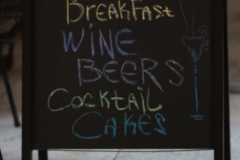 BreakFast
WINE
BEERS
COCKTAIL
CAKES